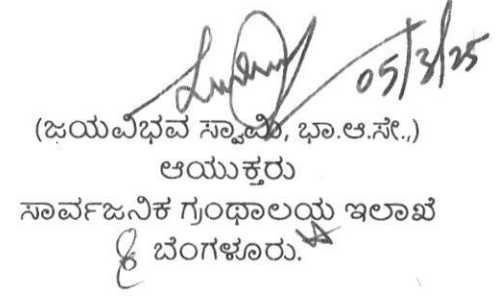 05/3/25
(ಜಯವಿಭವ ಸ್ವಾಮಿ, ಭಾ.ಆ.ಸೇ.,)
ಆಯುಕ್ತರು
ಸಾರ್ವಜನಿಕ ಗ್ರಂಥಾಲಯ ಇಲಾಖೆ
ಬೆಂಗಳೂರು.